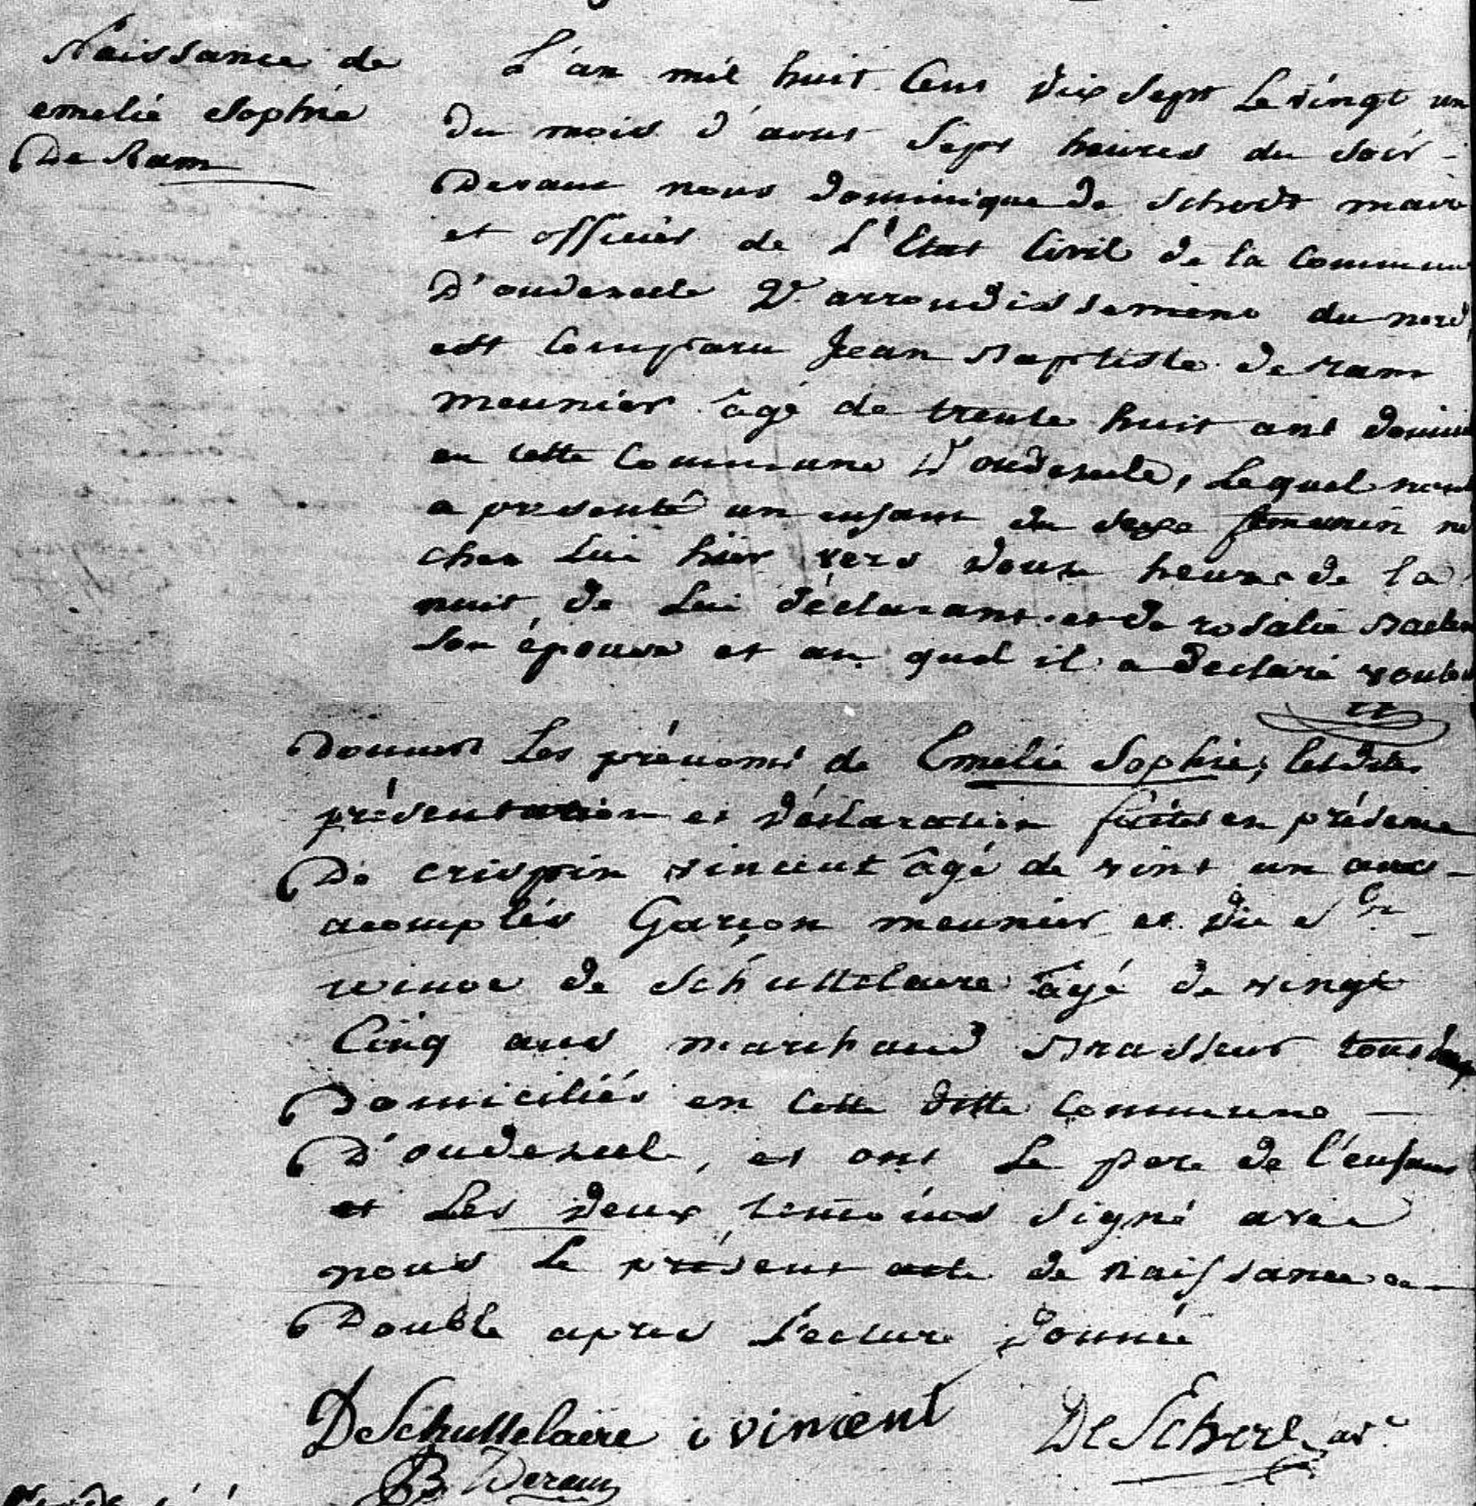 Naissance de
emelie Sophie
De Ram
L'an mil huit Cent dix sept Le vingt un
du mois d'aout Sept heures du soir -
Devant nous dominique de Schodt mair
et officier de L'Etat Civil de la Commune
D'oudezeele 2e arrondissement du nord
est Comparu Jean Baptiste de ram
meunier âgé de trente huit ans domici
en cette Commune D'oudezeele, Lequel nous
a presenté un enfant du sexe femenin né
chez Lui hier vers douze heures de la
nuit, de Lui déclarant et de rosalie
son épouse et au quel il a déclaré vouloir
Donner Les prénoms de Emelie Sophie; lesdites
présentation et déclaration faites en présence
De crispin vincent âgé de vint un ans -
acomplis Garçon meunier et du Sr
winoc de Schuttelaere âgé de vingt
Cinq ans marchand Brasseur tous deux
Domiciliés en cette ditte Commune —
D'oudezeele, et ont Le pere de l'enfant
et Les deux temoins signé avec
nous Le présent acte de naissance en —
Double apres Lecture donnée
DeSchuttelaere i vincent
B Deram